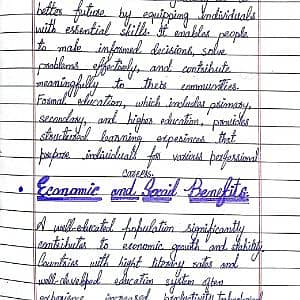 better future by equipping individuals
with essential skills. It enables people
to make informed decisions, solve
problems effectively, and contribute
meaningfully to their communities.
Formal education, which includes primary,
secondary, and higher education, provides
structured learning experinces that
prepare individuals for various professional
careers.
• Economic and Socail Benefits:
A well-educated population significantly
contributes to economic growth and stability.
Countries with hight literacy rates and
well-developed education system often
experience increased productivity, technological